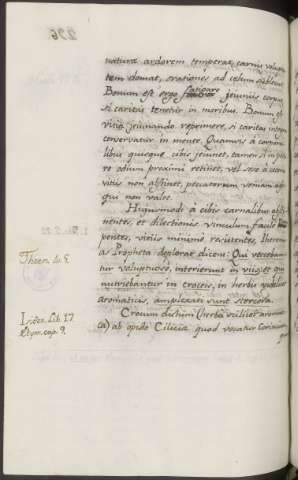 226
naturæ ardorem temperat, carnis volupta
tem domat, orationes ad cœlum sublevat.
Bonum est ergo fatigare jejuniis corpus,
si caritas tenetur in moribus. Bonum est
vitia jejunando reprimere, si caritas integra
conservatur in mente. Quamvis à corpora
libus quisque cibis jejunet, tamen si in pecto
re odium proximi retinet, vel se à
vitiis non abstinet, peccatorem
qui non valet.
Hujusmodi à cibis carnalibus absti
nentes, et dilectionis vinculum
ponentes, vitiis minimè resistentes, Jheremi
as Propheta deplorat dicens: Qui vesceban
tur voluptuose, interierunt in viis, et qui
nutriebantur in croceis, in herbis
aromaticis, amplexati sunt stercora.
Thren. 4. 5
Crocum dictum (herba scilicet aromati
ca) ab opido Ciliciæ quod vocatur Coricium
Isidor. Lib. 17
Etym. cap. 9.